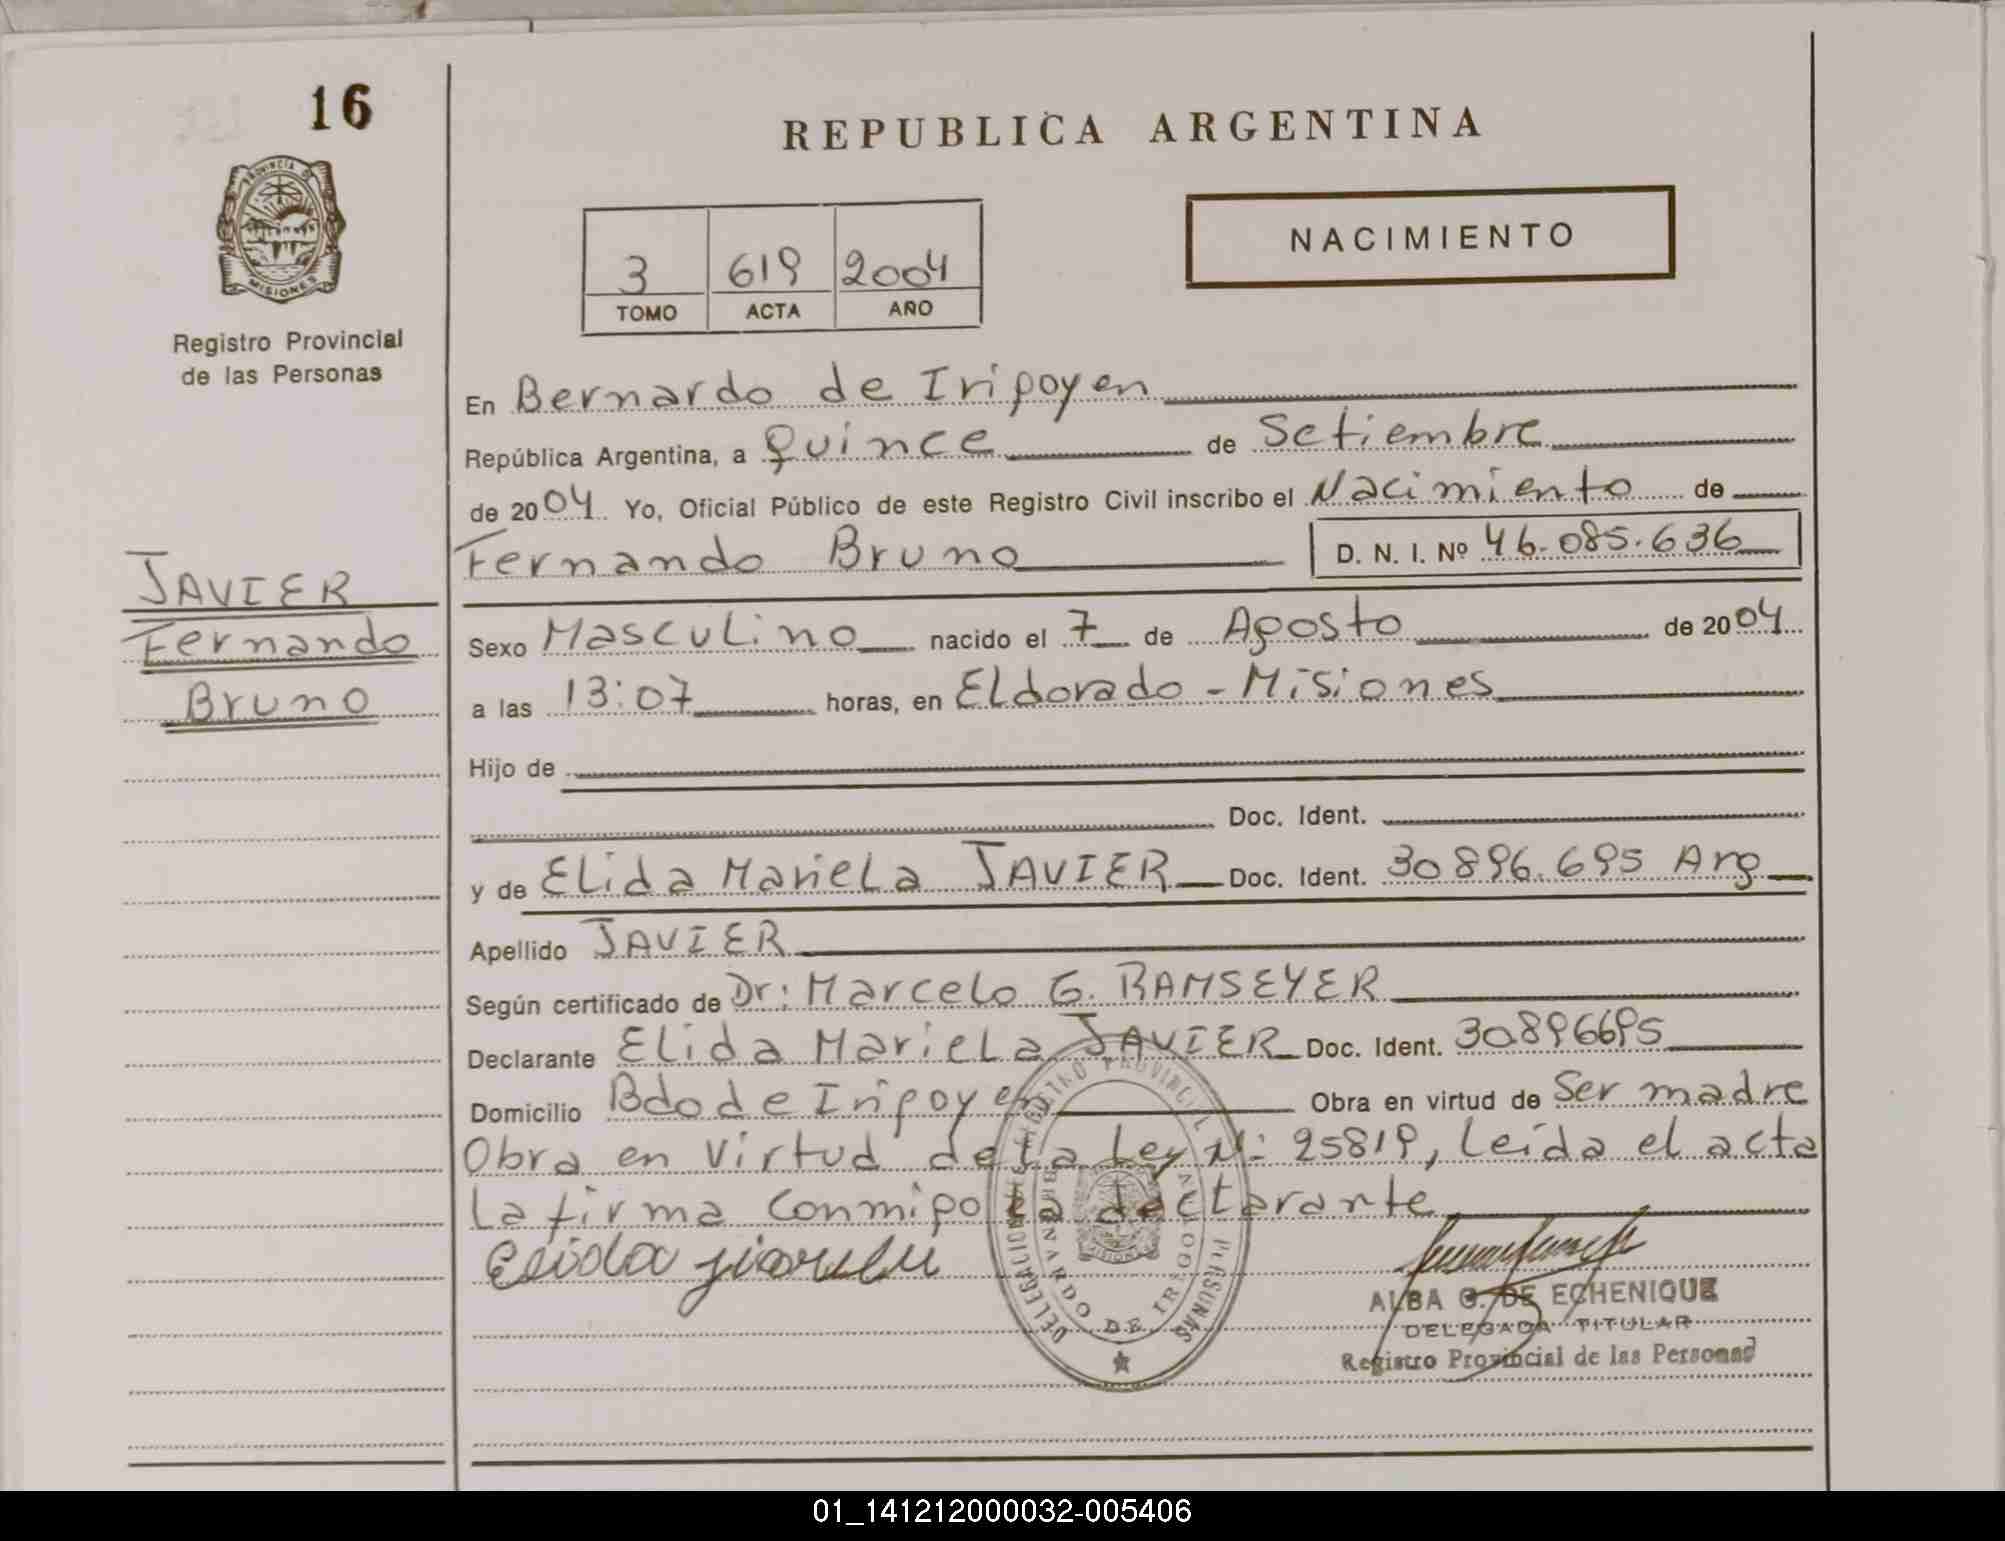 16
REPUBLICA ARGENTINA
PROVINCIA DE
MISIONES
NACIMIENTO
3 619 2004
TOMO ACTA AÑO
Registro Provincial
de las Personas
En Bernardo de Irigoyen
República Argentina, a Quince de Setiembre
de 2004 Yo, Oficial Público de este Registro Civil inscribo el Nacimiento de
Fernando Bruno D. N. I. Nº 46.085.636
JAVIER
Fernando
Bruno
Sexo Masculino nacido el 7 de Agosto de 2004
a las 13:07 horas, en Eldorado - Misiones
Hijo de
Doc. Ident.
y de Elida Mariela JAVIER Doc. Ident. 30896.695 Arg
Apellido JAVIER
Según certificado de Dr: Marcelo G. RAMSEYER
Declarante Elida Mariela JAVIER Doc. Ident. 30896695
Domicilio Bdo de Irigoyen Obra en virtud de Ser madre
Obra en virtud de la Ley N: 25819, Leída el acta
La firma conmigo la declarante
Elida
ALBA G. DE ECHENIQUE
DELEGADA TITULAR
Registro Provincial de las Personas
DELEGACION REGISTRO PROVINCIAL PERSONAS
BERNARDO DE IRIGOYEN
MISIONES
01_141212000032-005406